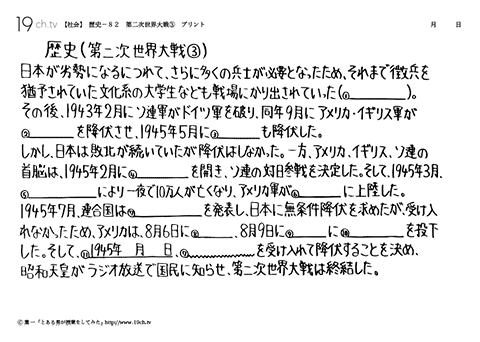 19ch.tv 【社会】 歴史－82 第二次世界大戦③ プリント 月 日
歴史(第二次世界大戦③)
日本が劣勢になるにつれて、さらに多くの兵士が必要となったため、それまで徴兵を
猶予されていた文化系の大学生なども戦場にかり出されていった(① )。
その後、1943年2月にソ連軍がドイツ軍を破り、同年9月にアメリカ・イギリス軍が
② を降伏させ、1945年5月に③ も降伏した。
しかし、日本は敗北が続いていたが降伏はしなかった。一方、アメリカ、イギリス、ソ連の
首脳は、1945年2月に④ を開き、ソ連の対日参戦を決定した。そして、1945年3月、
⑤ により一夜で10万人が亡くなり、アメリカ軍が⑥ に上陸した。
1945年7月、連合国は⑦ を発表し、日本に無条件降伏を求めたが、受け入
れなかったため、アメリカは、8月6日に⑧ 、8月9日に⑨ に⑩ を投下
した。そして、⑪1945年 月 日、⑫ を受け入れて降伏することを決め、
昭和天皇がラジオ放送で国民に知らせ、第二次世界大戦は終結した。
ⓒ 葉一「とある男が授業をしてみた」http://www.19ch.tv